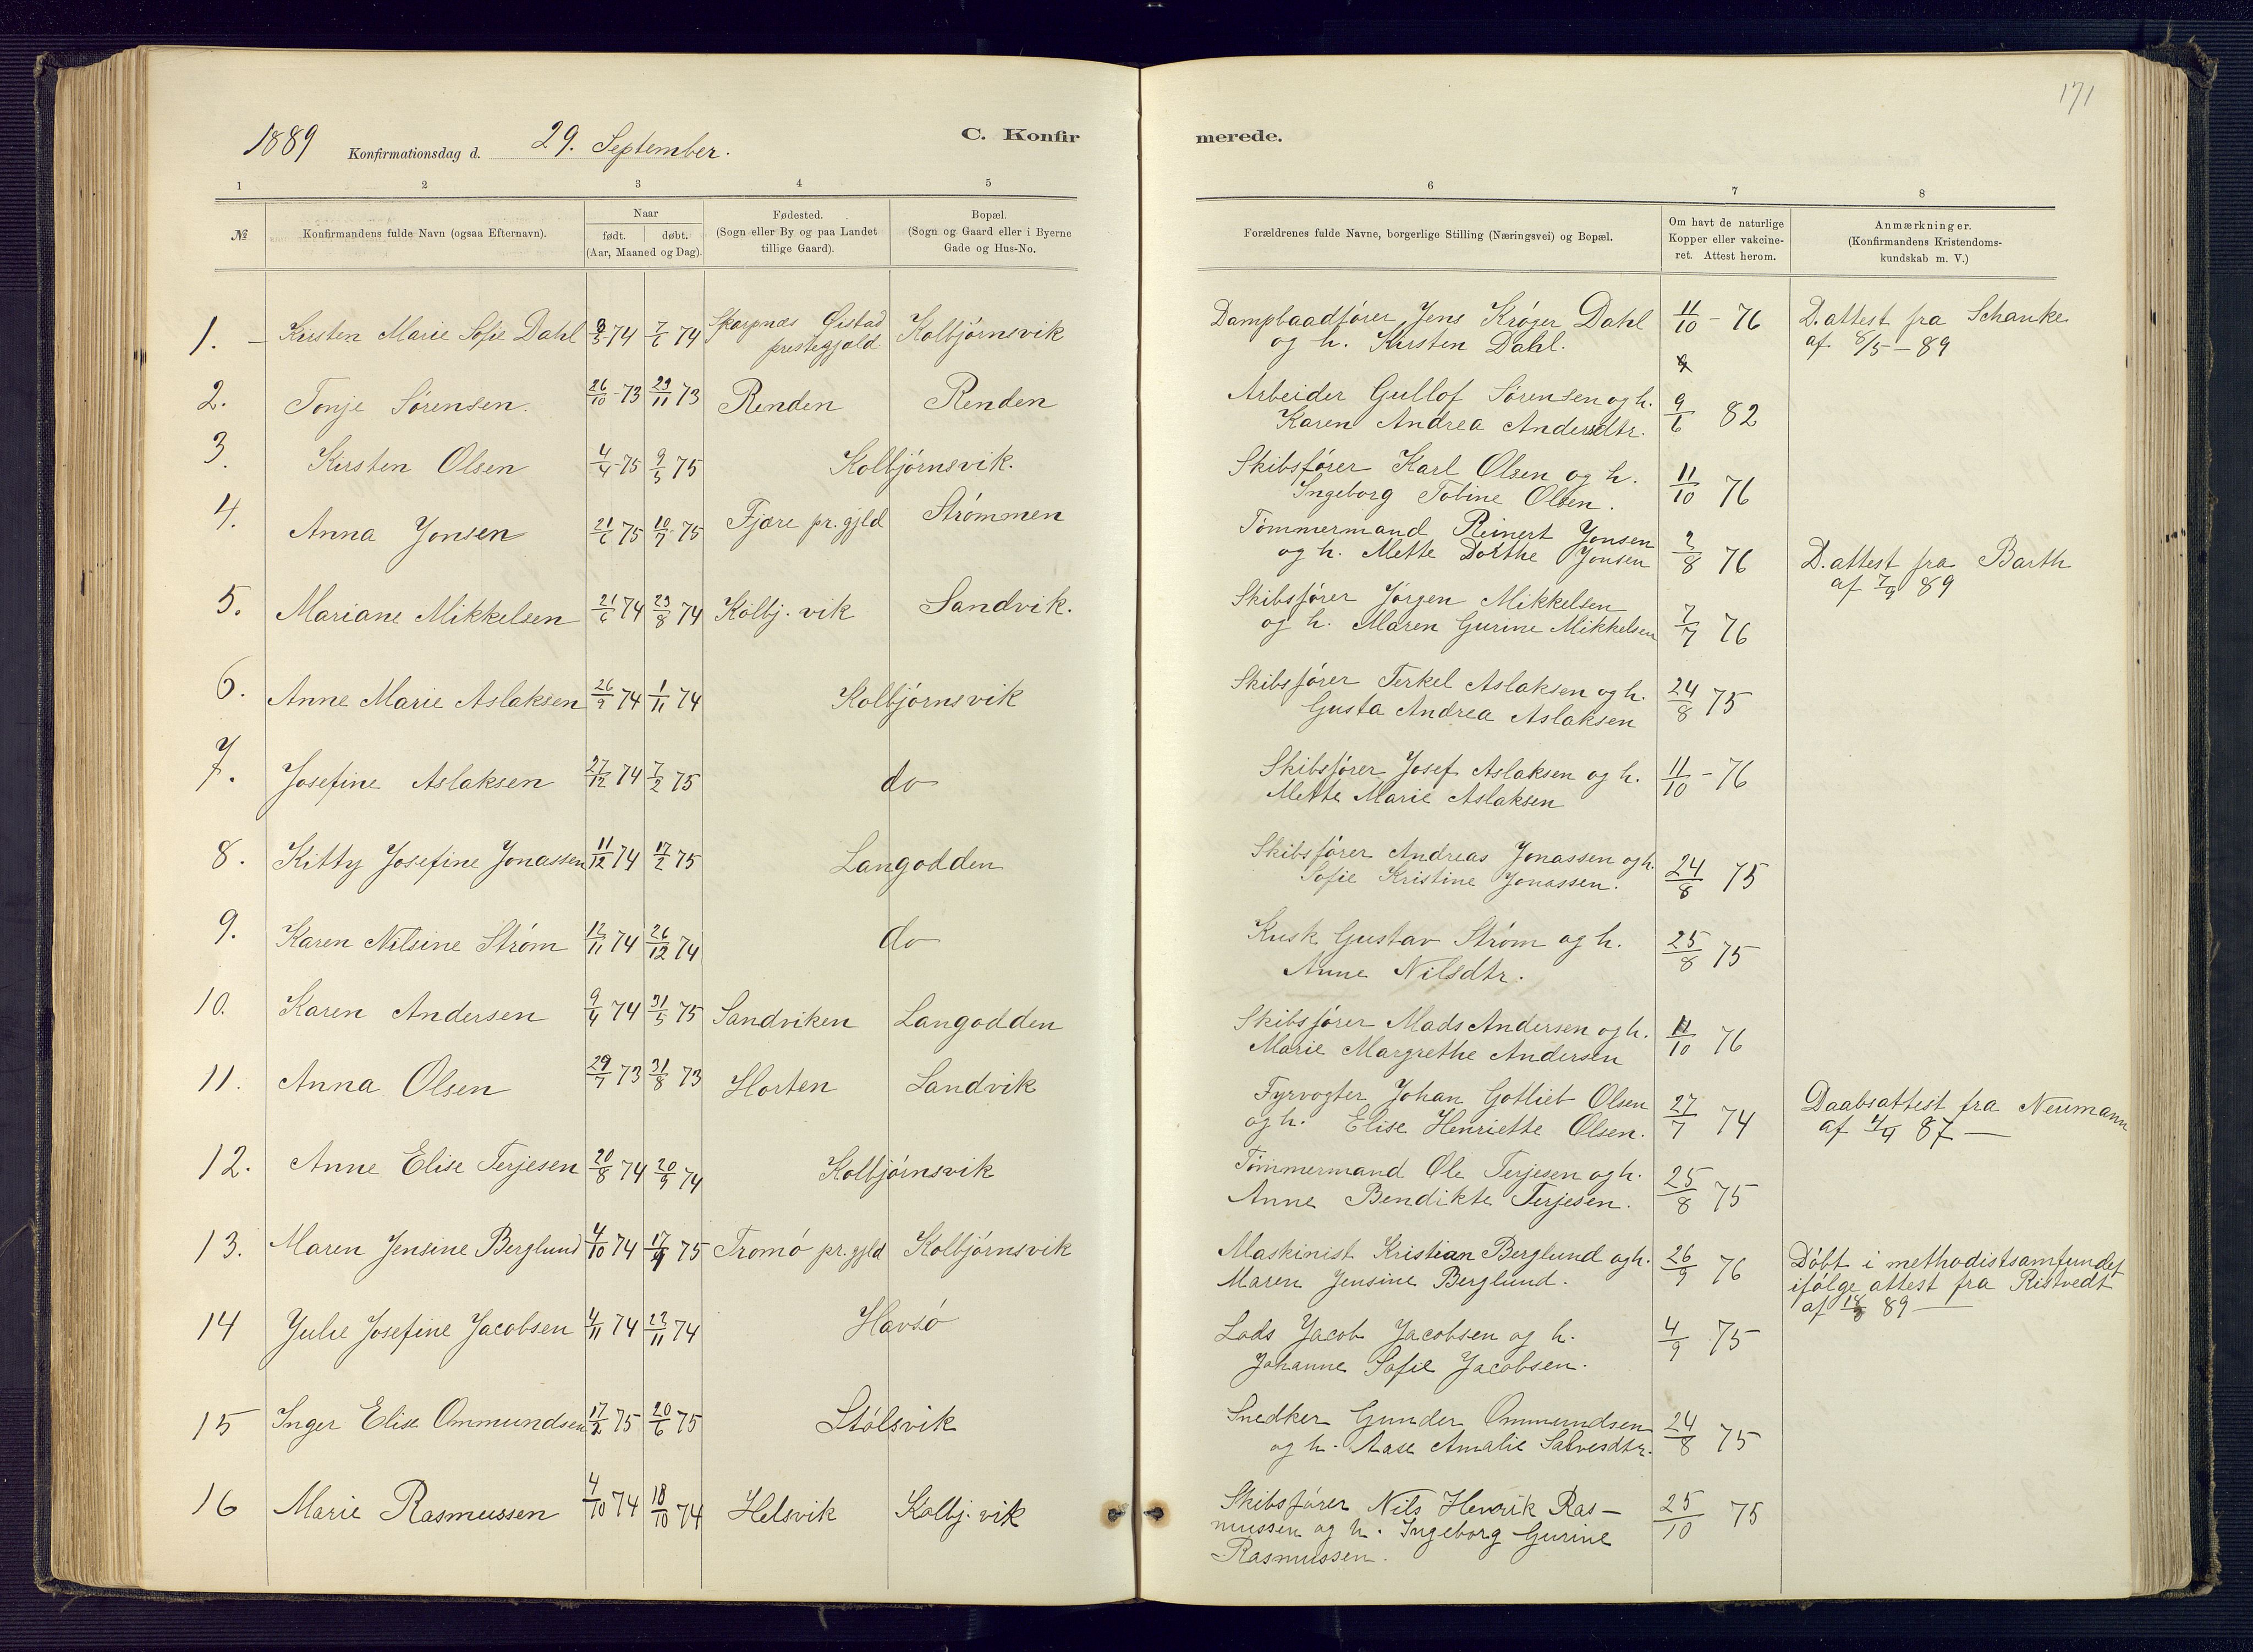 171
1889 Konfirmationsdag d. 29. September.
C. Konfirmerede.
1 2 3 4 5 6 7 8
№
Konfirmandens fulde Navn (ogsaa Efternavn).
Naar
født. døbt.
(Aar, Maaned og Dag).
Fødested.
(Sogn eller By og paa Landet
tillige Gaard).
Bopæl.
(Sogn og Gaard eller i Byerne
Gade og Hus-No.
Forældrenes fulde Navne, borgerlige Stilling (Næringsvei) og Bopæl.
Om havt de naturlige
Kopper eller vakcine-
ret. Attest herom.
Anmærkninger.
(Konfirmandens Kristendoms-
kundskab m. V.)
1. Kirsten Marie Sofie Dahl 9/3 74 7/6 74 Skarpnæs Øistad
prestegjæld Kolbjørnsvik
Dampbaadfører Jens Krøger Dahl
og h. Kirsten Dahl.
11/10 - 76
D. attest fra Schanke
af 8/5 - 89
2. Tonje Sørensen. 26/10 73 23/11 73 Renden Renden
Arbeider Gullof Sørensen og h.
Karen Andrea Andersdtr.
9/6 82
3. Kirsten Olsen 4/4 75 9/5 75 Kolbjørnsvik.
Skibsfører Karl Olsen og h.
Ingeborg Tobine Olsen.
11/10 76
4. Anna Jonsen 21/6 75 10/7 75 Fjære pr. gjld Strømmen
Tømmermand Reinert Jonsen
og h. Mette Dorthe Jonsen
2/8 76
D. attest fra Barth
af 7/9 89
5. Mariane Mikkelsen 21/6 74 23/8 74 Kolbj. vik Sandvik.
Skibsfører Jørgen Mikkelsen
og h. Maren Gurine Mikkelsen
7/7 76
6. Anne Marie Aslaksen 26/9 74 1/11 74 Kolbjørnsvik
Skibsfører Terkel Aslaksen og h.
Gusta Andrea Aslaksen
24/8 75
7. Josefine Aslaksen 27/12 74 7/2 75 do
Skibsfører Josef Aslaksen og h.
Mette Marie Aslaksen
11/10 - 76
8. Kitty Josefine Jonassen 11/12 74 17/2 75 Langodden
Skibsfører Andreas Jonassen og h.
Sofie Kristine Jonassen.
24/8 75
9. Karen Nilsine Strøm 12/11 74 26/12 74 do
Kusk Gustav Strøm og h.
Anne Nilsdtr.
25/8 75
10. Karen Andersen 9/4 74 31/5 75 Sandviken Langodden
Skibsfører Mads Andersen og h.
Marie Margrethe Andersen
11/10 76
11. Anna Olsen 29/7 73 31/8 73 Horten Sandvik
Fyrvogter Johan Gotlieb Olsen
og h. Elise Henriette Olsen.
27/7 74
Daabsattest fra Neumann
af 4/4 87 —
12. Anne Elise Terjesen 20/8 74 20/9 74 Kolbjørnsvik
Tømmermand Ole Terjesen og h.
Anne Bendikte Terjesen.
25/8 75
13. Maren Jensine Berglund 4/10 74 17/9 75 Tromø pr. gjld Kolbjørnsvik
Maskinist Kristian Berglund og h.
Maren Jensine Berglund.
26/9 76
Døbt i methodistsamfundet
ifølge attest fra Ristvedt
af 18/8 89 —
14 Julie Josefine Jacobsen 4/11 74 22/11 74 Havsø
Lods Jacob Jacobsen og h.
Johanne Sofie Jacobsen.
4/9 75
15 Inger Elise Ommundsen 17/2 75 20/6 75 Stølsvik
Snedker Gunder Ommundsen
og h. Aase Amalie Salvesdtr.
24/8 75
16 Marie Rasmussen 4/10 74 18/10 74 Helsvik Kolbj. vik
Skibsfører Nils Henrik Ras-
mussen og h. Ingeborg Gurine
Rasmussen.
25/10 75